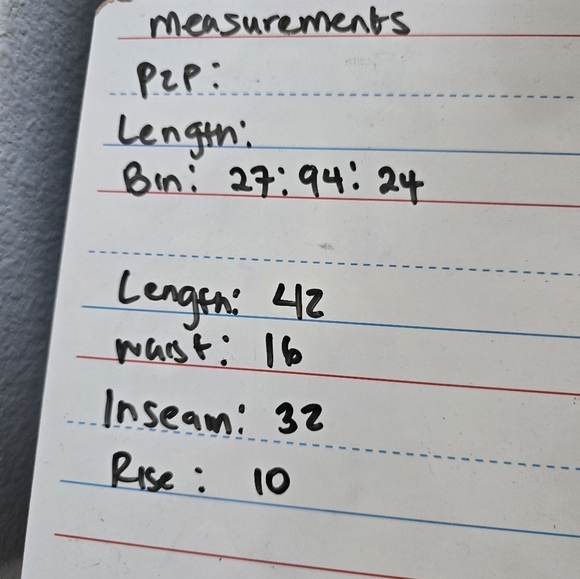 measurements
P2P:
Length:
Bin: 27:94:24
Length: 42
Waist: 16
Inseam: 32
Rise: 10